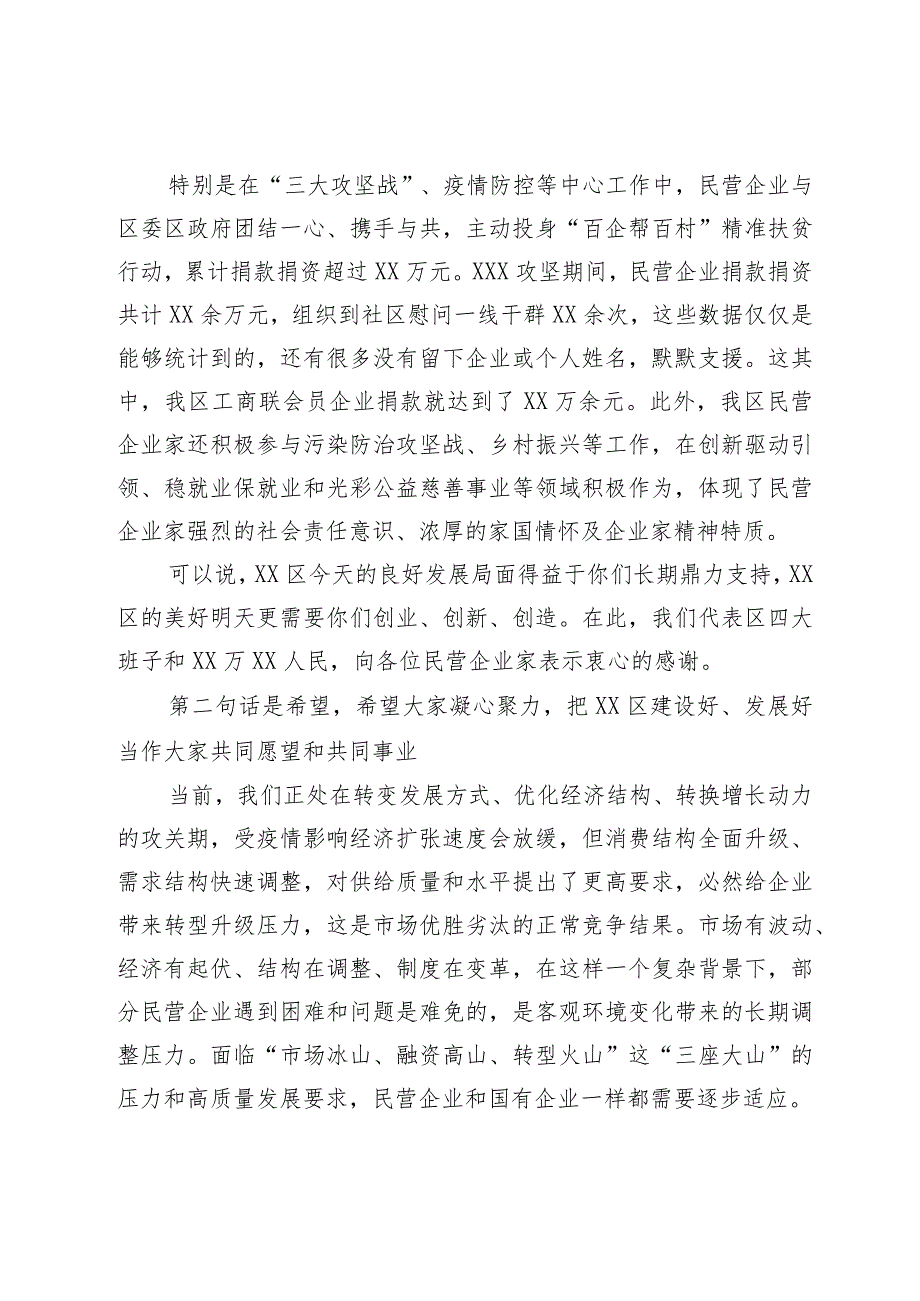 特别是在“三大攻坚战”、疫情防控等中心工作中，民营企业与
区委区政府团结一心、携手与共，主动投身“百企帮百村”精准扶贫
行动，累计捐款捐资超过 XX 万元。XXX 攻坚期间，民营企业捐款捐资
共计 XX 余万元，组织到社区慰问一线干群 XX 余次，这些数据仅仅是
能够统计到的，还有很多没有留下企业或个人姓名，默默支援。这其
中，我区工商联会员企业捐款就达到了 XX 万余元。此外，我区民营
企业家还积极参与污染防治攻坚战、乡村振兴等工作，在创新驱动引
领、稳就业保就业和光彩公益慈善事业等领域积极作为，体现了民营
企业家强烈的社会责任意识、浓厚的家国情怀及企业家精神特质。
可以说，XX 区今天的良好发展局面得益于你们长期鼎力支持，XX
区的美好明天更需要你们创业、创新、创造。在此，我们代表区四大
班子和 XX 万 XX 人民，向各位民营企业家表示衷心的感谢。
第二句话是希望，希望大家凝心聚力，把 XX 区建设好、发展好
当作大家共同愿望和共同事业
当前，我们正处在转变发展方式、优化经济结构、转换增长动力
的攻关期，受疫情影响经济扩张速度会放缓，但消费结构全面升级、
需求结构快速调整，对供给质量和水平提出了更高要求，必然给企业
带来转型升级压力，这是市场优胜劣汰的正常竞争结果。市场有波动、
经济有起伏、结构在调整、制度在变革，在这样一个复杂背景下，部
分民营企业遇到困难和问题是难免的，是客观环境变化带来的长期调
整压力。面临“市场冰山、融资高山、转型火山”这“三座大山”的
压力和高质量发展要求，民营企业和国有企业一样都需要逐步适应。